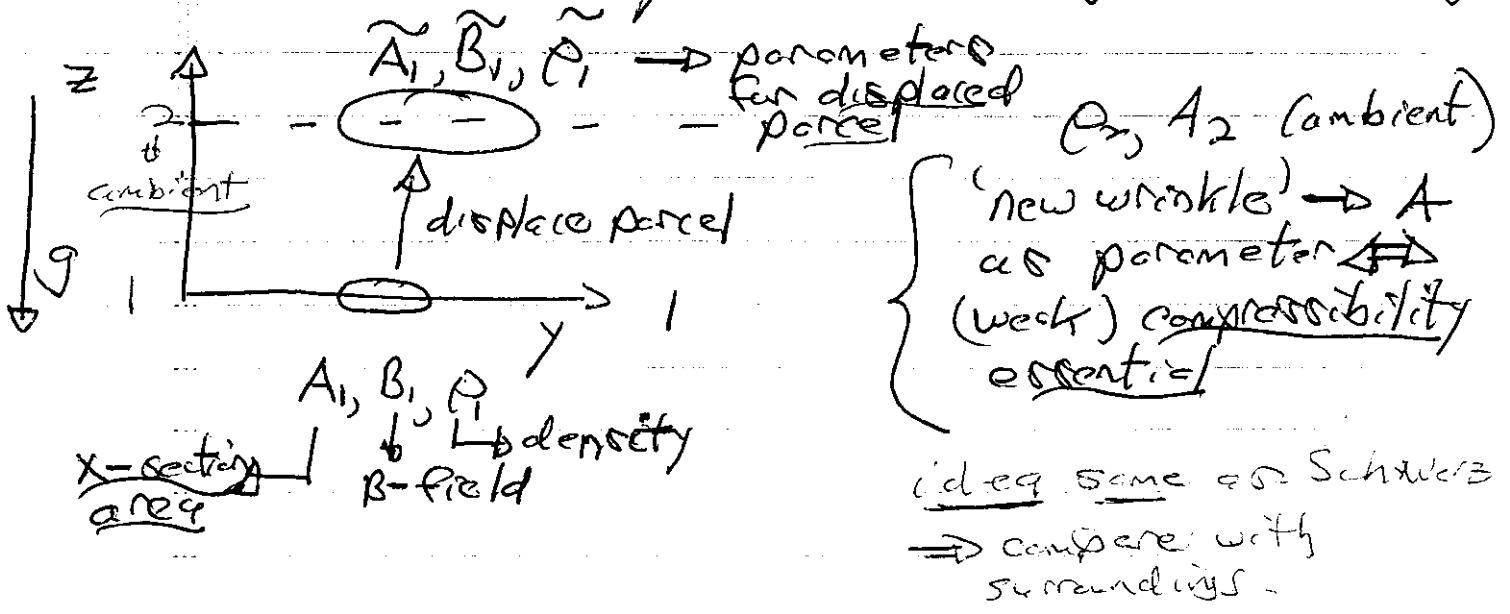 Ã₁, B̃₁, ρ̃₁ → parameters
for displaced
parcel
z
2
ambient
displace parcel
g
1
y
1
A₁, B₁, ρ₁
density
x-section
area
B-field
ρ₂, A₂ (ambient)
'new wrinkle' → A
as parameter ⇔
(weak) compressibility
essential
idea same as Schwarz
⇒ compare with
surroundings.